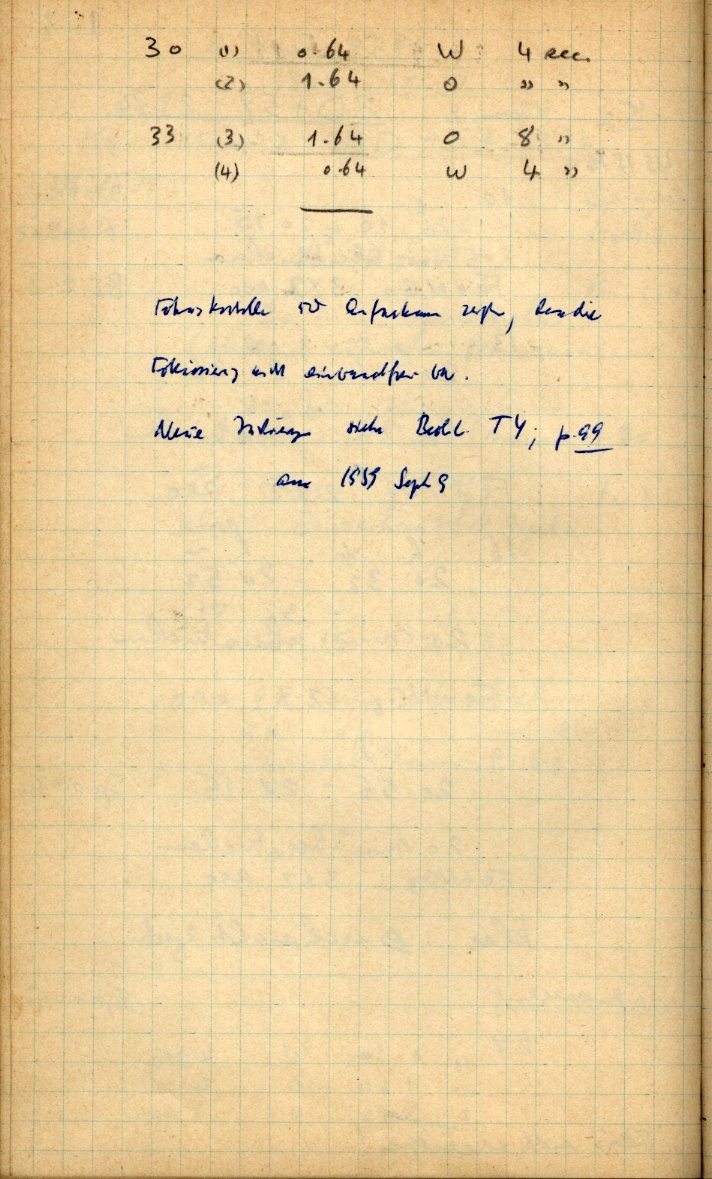 30 (1) 0.64 W 4 sec.
(2) 1.64 O " "
33 (3) 1.64 O 8 "
(4) 0.64 W 4 "
zeigen, dass die
Fokussierung nicht einwandfrei war.
Neue siehe Beob. T4, p. 99
1959 Sept 9